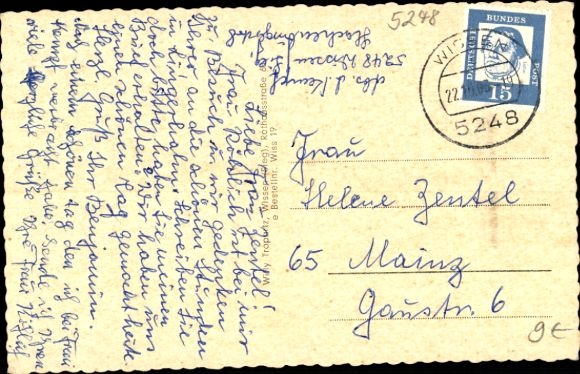 5248
Abs. J. Kempf
5248 Wissen/Sieg
Hachenburgerstr.
DEUTSCHE
BUNDES
POST
15
WISSEN
22.10.63
5248
Liebe Frau Zentel!
Frau Röhlich ist bei mir
zu Besuch u. wir gedenken
Ihrer an die schönen Stunden
in Königshafen. Schreiben Sie
doch bitte, haben Sie meinen
Brief erhalten? Wir haben uns
einen schönen Tag gemacht heute.
Herzl. Gruß Ihr Benjamin.
Auch einen schönen Tag den ich bei Frau
Kempf verbracht habe, sende ich Ihnen
viele herzliche Grüße Ihre Frau Röhlich
Wilh. Tropartz, Wissen (Sieg), Rathausstraße
Bestellnr. Wiss 19
Frau
Helene Zentel
65 Mainz
Gaustr. 6
9€